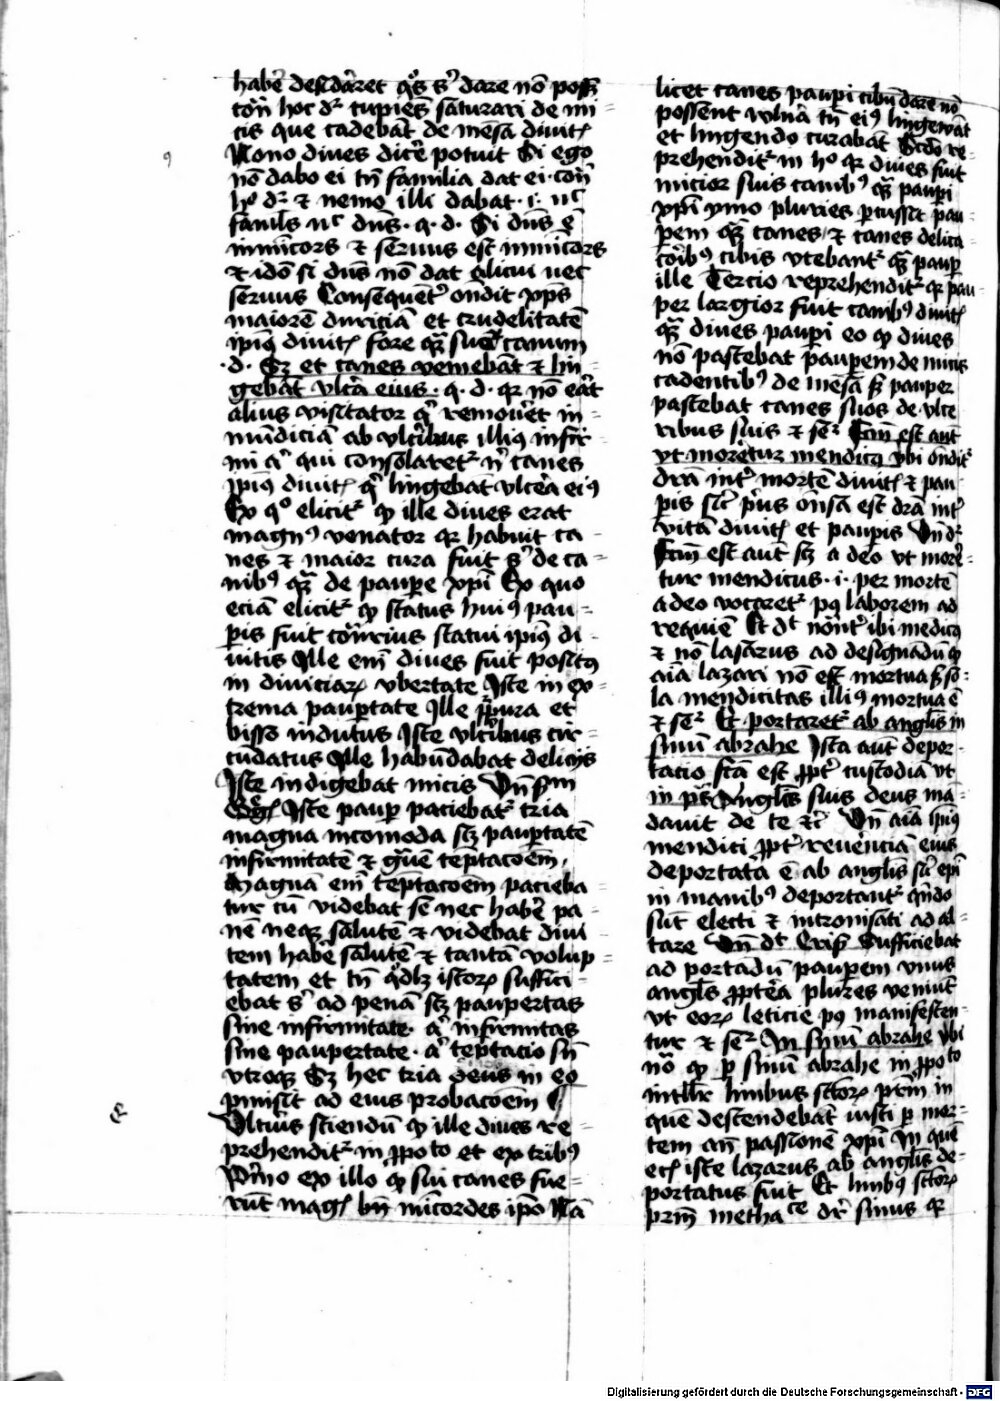 habe᷑ desid̕aret q̊s s̕ dare nō poss̄
cōn̄ hoc dr̄ cupiēs saturari de mi
cis que cadebāt de mēsa diuitꝭ
Nono diues dice᷑ potuit Si ego
nō dabo ei tn̄ familia dat ei · cōn̄
h° dr̄ ⁊ nemo illi dabat · i · nc̄
famil̕s nc̄ dn̄s · q · d · Si dn̄s ē
inmīcors ⁊ seruus est inmīcors
⁊ idō si dn̄s nō dat alicui nec
seruus Consequent̕ on̄dit xp̄s
maiorē duriciā et crudelitatē
ip̄iꝰ diuitꝭ fore qȝ̄ suoꝝ canum
· d · Sȝ et canes veniebāt ⁊ lin
gebāt vlc̄a eius · q · d · qꝛ nō erāt
alius visitator qͥ remou̕et in
mūdiciā ab vlcībus illiꝰ infir
mi aͥ qui consolaretͬ nͥ canes
ip̄iꝰ diuitꝭ qͥ lingebāt vlcera eiꝰ
Ex q° elicitͬ ꝙ ille diues erat
magnꝰ venator qꝛ habuit ca
nes ⁊ maior cura fuit s̕ de ca
nibꝰ qȝ̄ de paupere xp̄i Ex quo
eciā elicitͬ ꝙ status huiꝰ pau
ꝑis fuit cōrrius statui ip̄iꝰ di
uitis Ille em̄ diues fuit positꝰ
in diuiciaꝝ vbertate Iste in ex
trema pauꝑtate Ille pͬpura et
bisso indutus Iste vlcībus cir
cūdatus Ille habūdabat delicijs
Iste indigebat micis Vn̄ sᵐ
Gregꝭ Iste pauꝑ paciebatͬ tria
magna incomoda scȝ pauꝑtatē
infirmitatē ⁊ gͣuē tēptacōem̄
Magnā em̄ tēptacōem̄ pacieba
tur cū videbat se nec habe᷑ pa
nē neqȝ salutē ⁊ videbat diui
tem habe᷑ salutē ⁊ tantā volup
tatem et tn̄ qͦdlȝ istoꝝ suffici
ebat s̕ ad penā scȝ paupertas
sine infirmitate · aͥ infirmitas
sine paupertate · aͥ teptacio sn̄
vtroqȝ Sȝ hec tria deus in eo
ꝑmisit ad eius probacōem̄ ¶
Vltius sciendū ꝙ ille diues re
prehenditͬ in ꝓpoͭo et ex tribꝰ
Pͥmo ex illo ꝙ sui canes fue
rūt magꝭ bn̄ mīcordes ip̄o Nā
licet canes pauꝑi cibū dare nō
possent vulnͣa tn̄ eiꝰ lingebāt
et lingendo curabāt Scdō re
prehenditͬ in h° qꝛ diues fuit
micior suis canibꝰ qȝ̄ pauꝑi
xp̄i ymo pluries ꝑcussit pau
ꝑem qȝ̄ canes ⁊ canes delica
cōibꝰ cibis vtebantͬ qȝ̄ pauꝑ
ille Tercio reprehenditͬ qꝛ pau
per largior fuit canibꝰ diuitꝭ
qȝ̄ diues pauꝑi eo ꝙ diues
nō pascebat pauꝑem de micis
cadentibꝰ de mēsa sȝ pauper
pascebat canes suos de vlce
ribus suis ⁊ seͬ Fcm̄ est aūt
vt morēt̕ur mendicꝰ vbi on̄ditͬ
drām int̕ mortē diuitꝭ ⁊ pau
ꝑis sic̄ pͥus on̄sa est drā int̕
vitā diuitꝭ et pauꝑis Vn̄ dr̄
Fcm̄ est aūt scȝ a deo vt more᷑
tur mendicus · i · per mortē
a deo vocaretͬ pꝰ laborem ad
requiē Et dt nōint̕ ibi medicꝰ
⁊ nō lasarus ad designādū ꝙ
aīa lazari nō esset mortua sȝ so
la mendicitas illiꝰ mortua ē
⁊ seͬ Et portaretͬ ab angl̕is in
sinū abrahe Ista aūt depor
tacio fcā est ꝓpt̕ custodiā vt
in pͥs Angl̕is suis deus mā
dauit de te ⁊c̄ Vn̄ aīa ip̄ius
mendici ꝓpt̕ reuēnciā eius
deportata ē ab angl̕is sic̄ ep̄i
in manibꝰ deportantͬ qn̄do
sūt electi ⁊ intronisati ad al
tare Vn̄ dt Crisꝰ Sufficiebat
ad portādū pauꝑem vnus
angl̕s ꝓpterea plures veniūt
vt eoꝝ leticie pꝰ manifesten
tur ⁊ seͬ In sinū abrahe vbi
nō ꝙ ꝑ sinū abrahe in ꝓpoͭo
intll̕r limbus sctōꝝ pr̄m in
quē descendebāt iusti ꝑ mor
tem an̄ passionē xp̄i In quē
eciꝭ iste lazarus ab angl̕is de
portatus fuit Et limbꝰ sctōꝝ
prm̄ methaᶜᵉ dr̄ sinus qꝛ
Digitalisierung gefördert durch die Deutsche Forschungsgemeinschaft - DFG